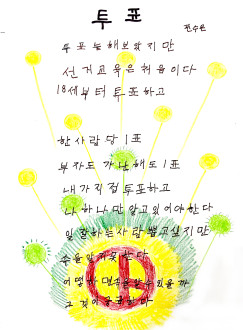 투표
전수연
투표는 해보았지만
선거교육은 처음이다
18세부터 투표하고
한사람당 1표
부자도 가난해도 1표
내가 직접 투표하고
나 하나만 알고 있어야 한다
일 잘하는 사람 뽑고 싶지만
그것이 궁금하다